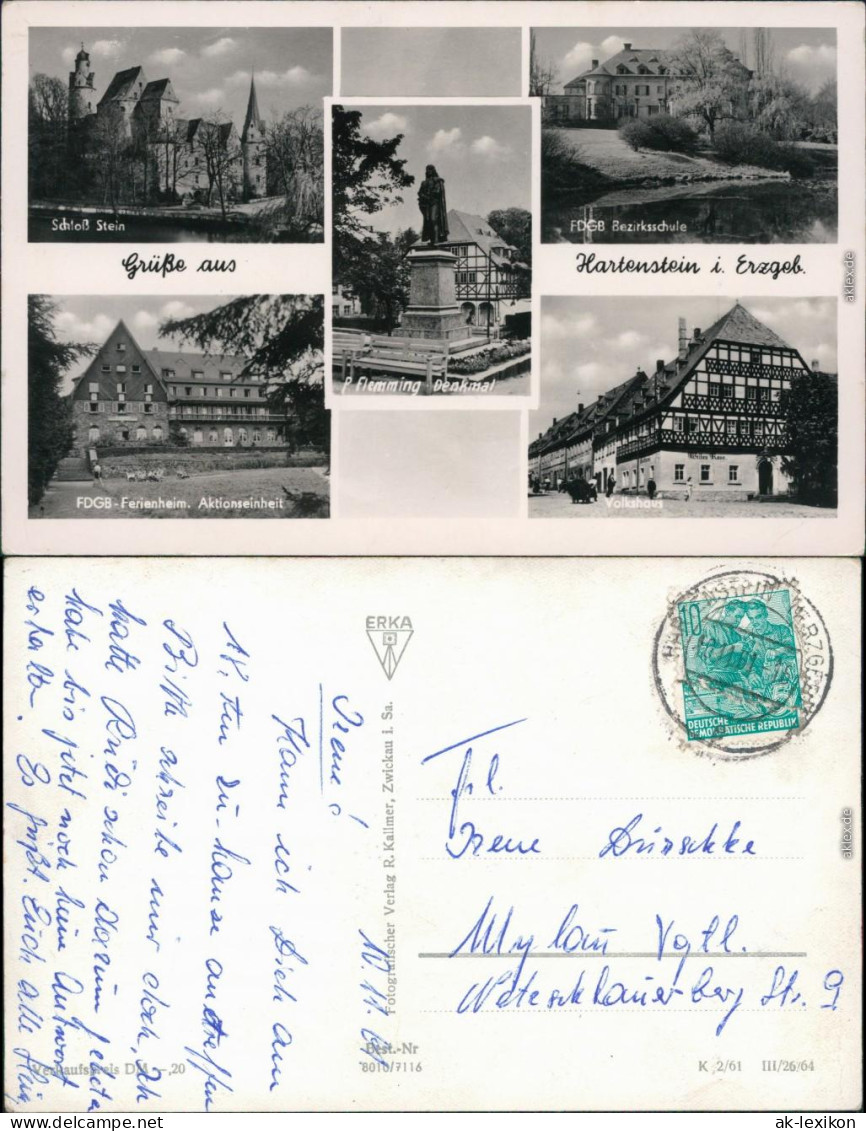 Schloß Stein
FDGB Bezirksschule
Grüße aus
Hartenstein i. Erzgeb.
P. Flemming Denkmal
FDGB-Ferienheim. Aktionseinheit
Volkshaus
aklex.de
Irene!
Kann ich Dich am
18. ten zu-hause antreffen
Bitte schreibe mir doch, ich
hatte Rudi schon darum
habe bis jetzt noch keine Antwort
erhalten. Es grüßt Euch alle
ERKA
Fotografischer Verlag R. Kallmer, Zwickau i. Sa.
Best.-Nr
8010/7116
Verkaufspreis DM -,20
K 2/61 III/26/64
10
DEUTSCHE
DEMOKRATISCHE REPUBLIK
Frl.
Irene
Mylau Vogtl.
Str. 9
aklex.de
ak-lexikon